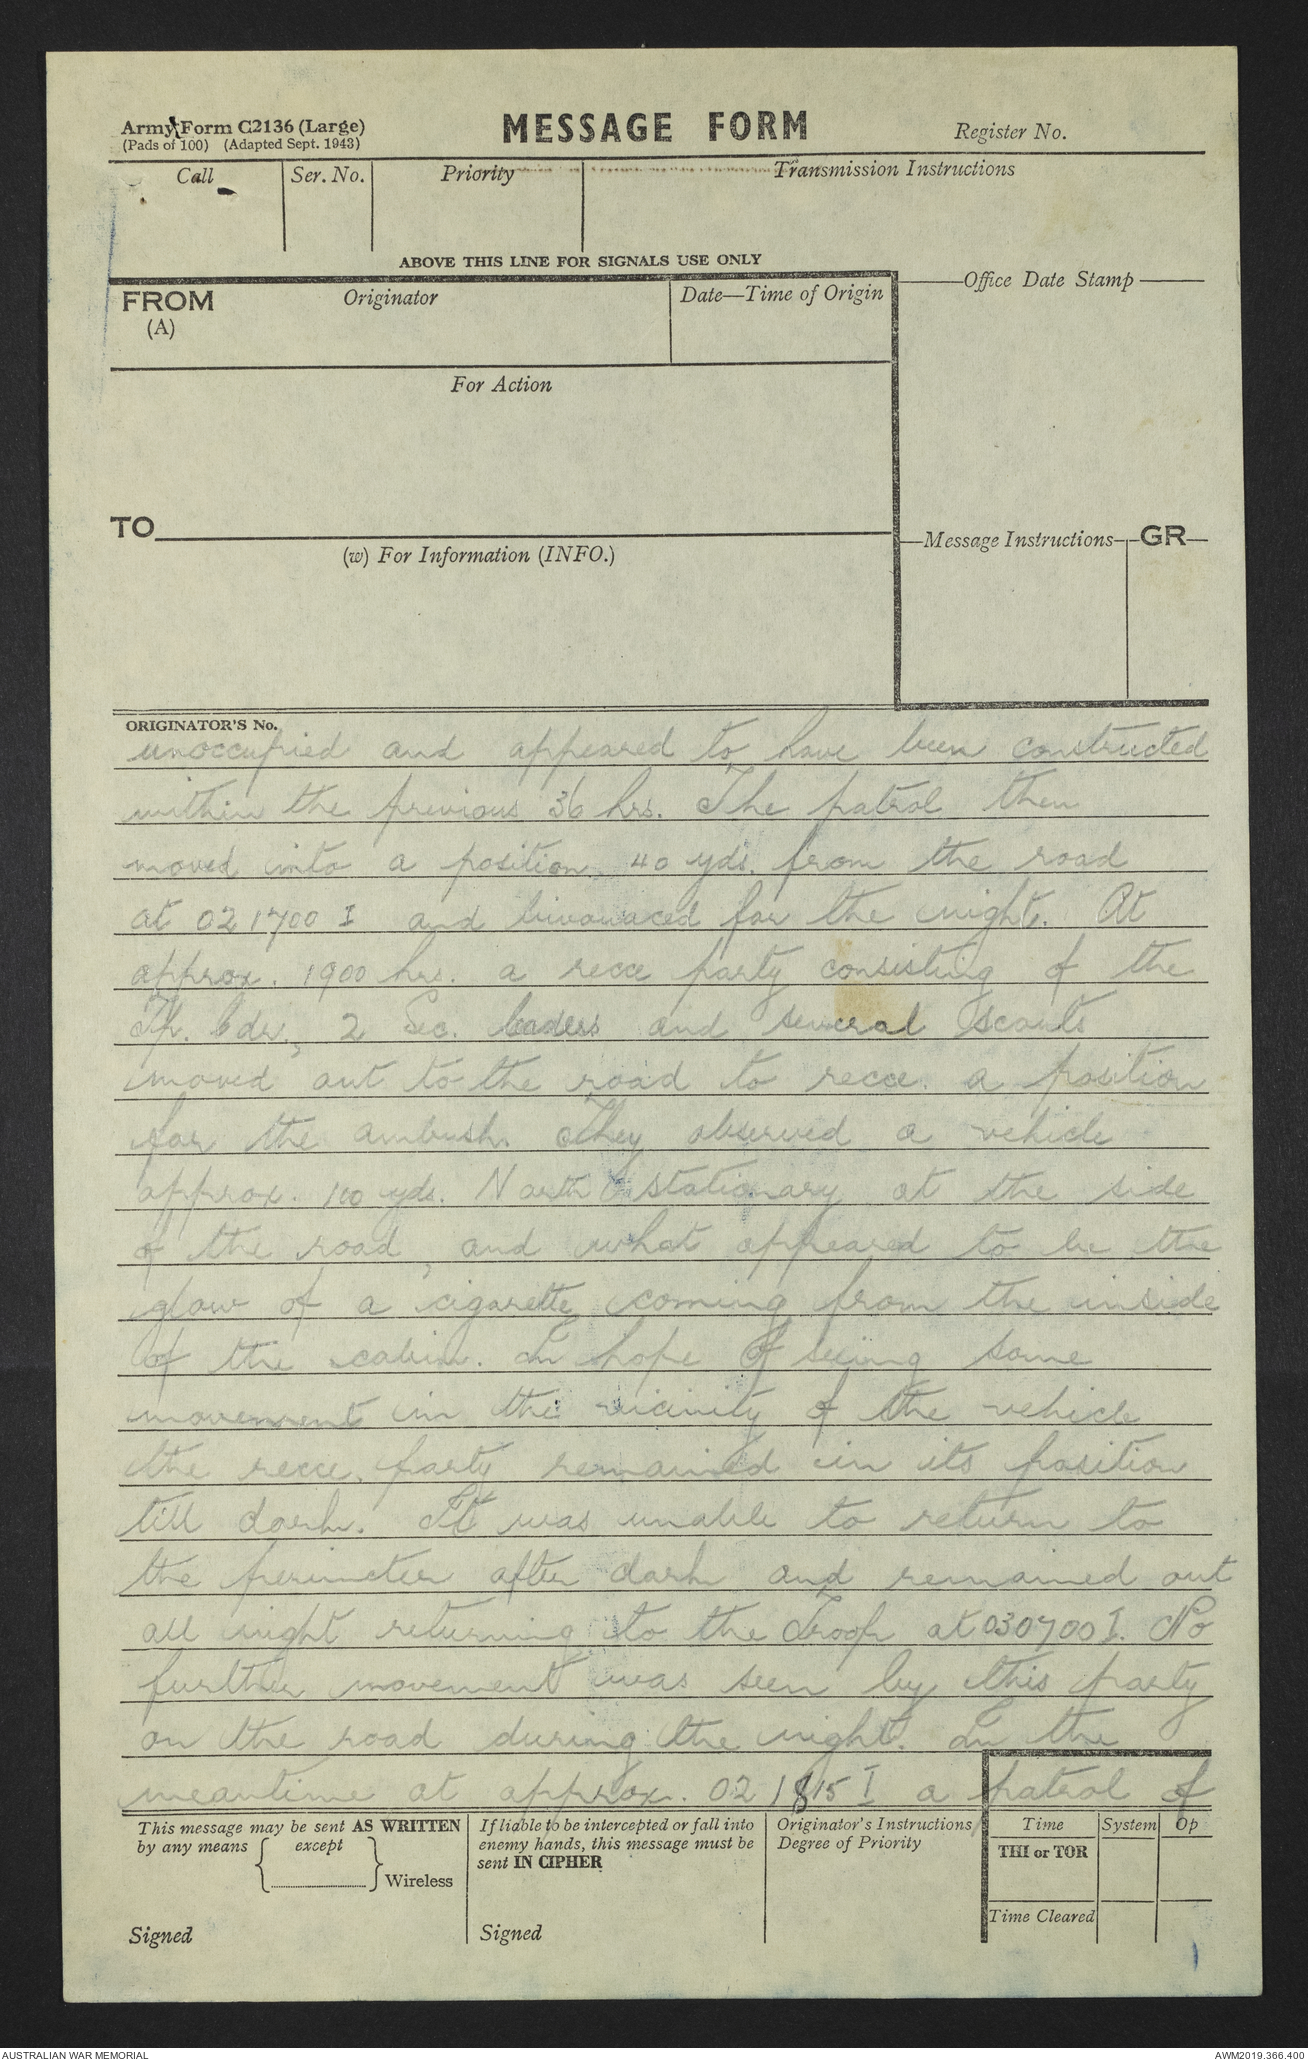 Army Form C2136 (Large)
(Pads of 100) (Adapted Sept. 1943)
MESSAGE FORM
Register No.
Call
Ser. No.
Priority
Transmission Instructions
ABOVE THIS LINE FOR SIGNALS USE ONLY
FROM
(A)
Originator
Date—Time of Origin
Office Date Stamp
For Action
TO
(w) For Information (INFO.)
Message Instructions
GR
ORIGINATOR'S No.
unoccupied and appeared to have been constructed
within the previous 36 hrs. The patrol then
moved into a position 40 yds. from the road
at 021700 I and bivouaced for the night. At
approx. 1900 hrs. a recce party consisting of the
Tp. Cdr., 2 Sec. leaders and several scouts
moved out to the road to recce. a position
for the ambush. They observed a vehicle
approx. 100 yds. North stationary at the side
of the road, and what appeared to be the
glow of a cigarette coming from the inside
of the cabin. In hope of seeing some
movement in the vicinity of the vehicle
the recce. party remained in its position
till dark. It was unable to return to
the perimeter after dark and remained out
all night returning to the Troop at 030700 I. No
further movement was seen by this party
on the road during the night. In the
meantime at approx. 021815 I a patrol of
This message may be sent AS WRITTEN
by any means { except } Wireless
Signed
If liable to be intercepted or fall into
enemy hands, this message must be
sent IN CIPHER
Signed
Originator's Instructions
Degree of Priority
Time
System
Op
THI or TOR
Time Cleared
AUSTRALIAN WAR MEMORIAL
AWM2019.366.400